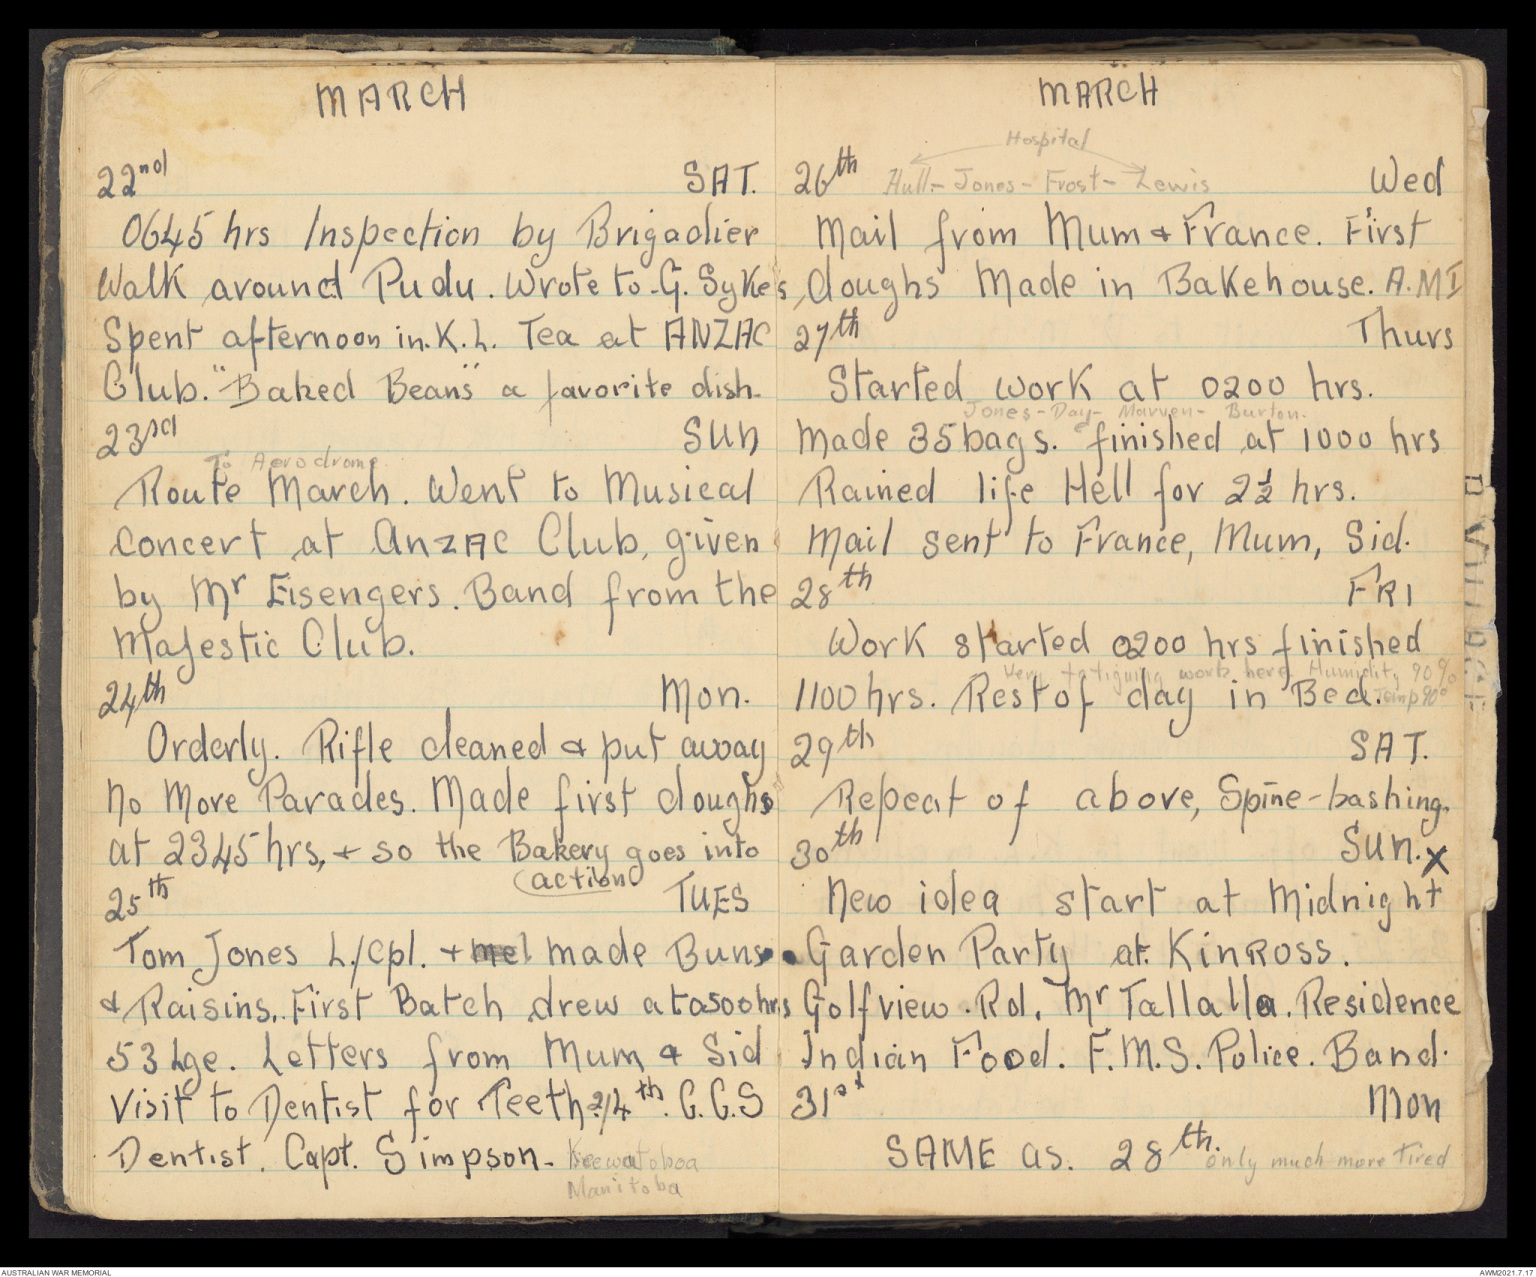 MARCH
22nd SAT.
0645 hrs Inspection by Brigadier
Walk around Pudu. Wrote to G. Sykes
Spent afternoon in K.L. Tea at ANZAC
Club. "Baked Beans" a favorite dish.
23rd SUN
To Aerodrome
Route March. Went to Musical
Concert at Anzac Club, given
by Mr Eisengers. Band from the
Majestic Club.
24th Mon.
Orderly. Rifle cleaned & put away
No More Parades. Made first doughs
at 2345 hrs, + so the Bakery goes into
(action
25th TUES
Tom Jones L/Cpl. + me made Buns
& Raisins. First Batch drew at 0500 hrs
53 Lge. Letters from Mum & Sid
Visit to Dentist for Teeth 2/4th. C.C.S
Dentist. Capt. Simpson.
Manitoba
MARCH
Hospital
26th Hull- Jones- Frost- Lewis Wed
Mail from Mum & France. First
doughs Made in Bakehouse. A.M.I
27th Thurs
Started work at 0200 hrs.
Jones- Day- Marven- Burton.
Made 35 bags. finished at 1000 hrs
Rained life Hell for 2½ hrs.
Mail sent to France, Mum, Sid.
28th FRI
Work started 0200 hrs finished
Very fatiguing work here, Humidity 90%
1100 hrs. Rest of day in Bed. Temp 90°
29th SAT.
Repeat of above, Spine-bashing.
30th SUN. X
New idea start at Midnight
Garden Party at Kinross.
Golfview Rd, Mr Tallalla. Residence
Indian Food. F.M.S. Police. Band.
31st Mon
SAME as. 28th. only much more Tired
AUSTRALIAN WAR MEMORIAL
AWM2021.7.17